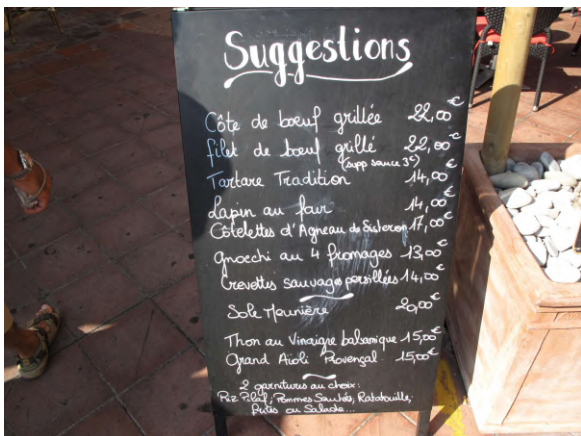 Suggestions
Côte de boeuf grillée 22,00€
filet de boeuf grillé 22,00€
(supp sauce 3€)
Tartare Tradition 14,00€
Lapin au four 14,00€
Côtelettes d'Agneau de Sisteron 17,00€
Gnocchi au 4 fromages 13,00€
Crevettes sauvages persillées 14,00€
Sole Meunière 20,00€
Thon au Vinaigre balsamique 15,00€
Grand Aïoli Provençal 15,00€
2 garnitures au choix:
Riz Pilaf, Pommes Sautées, Ratatouille,
ou Salade...